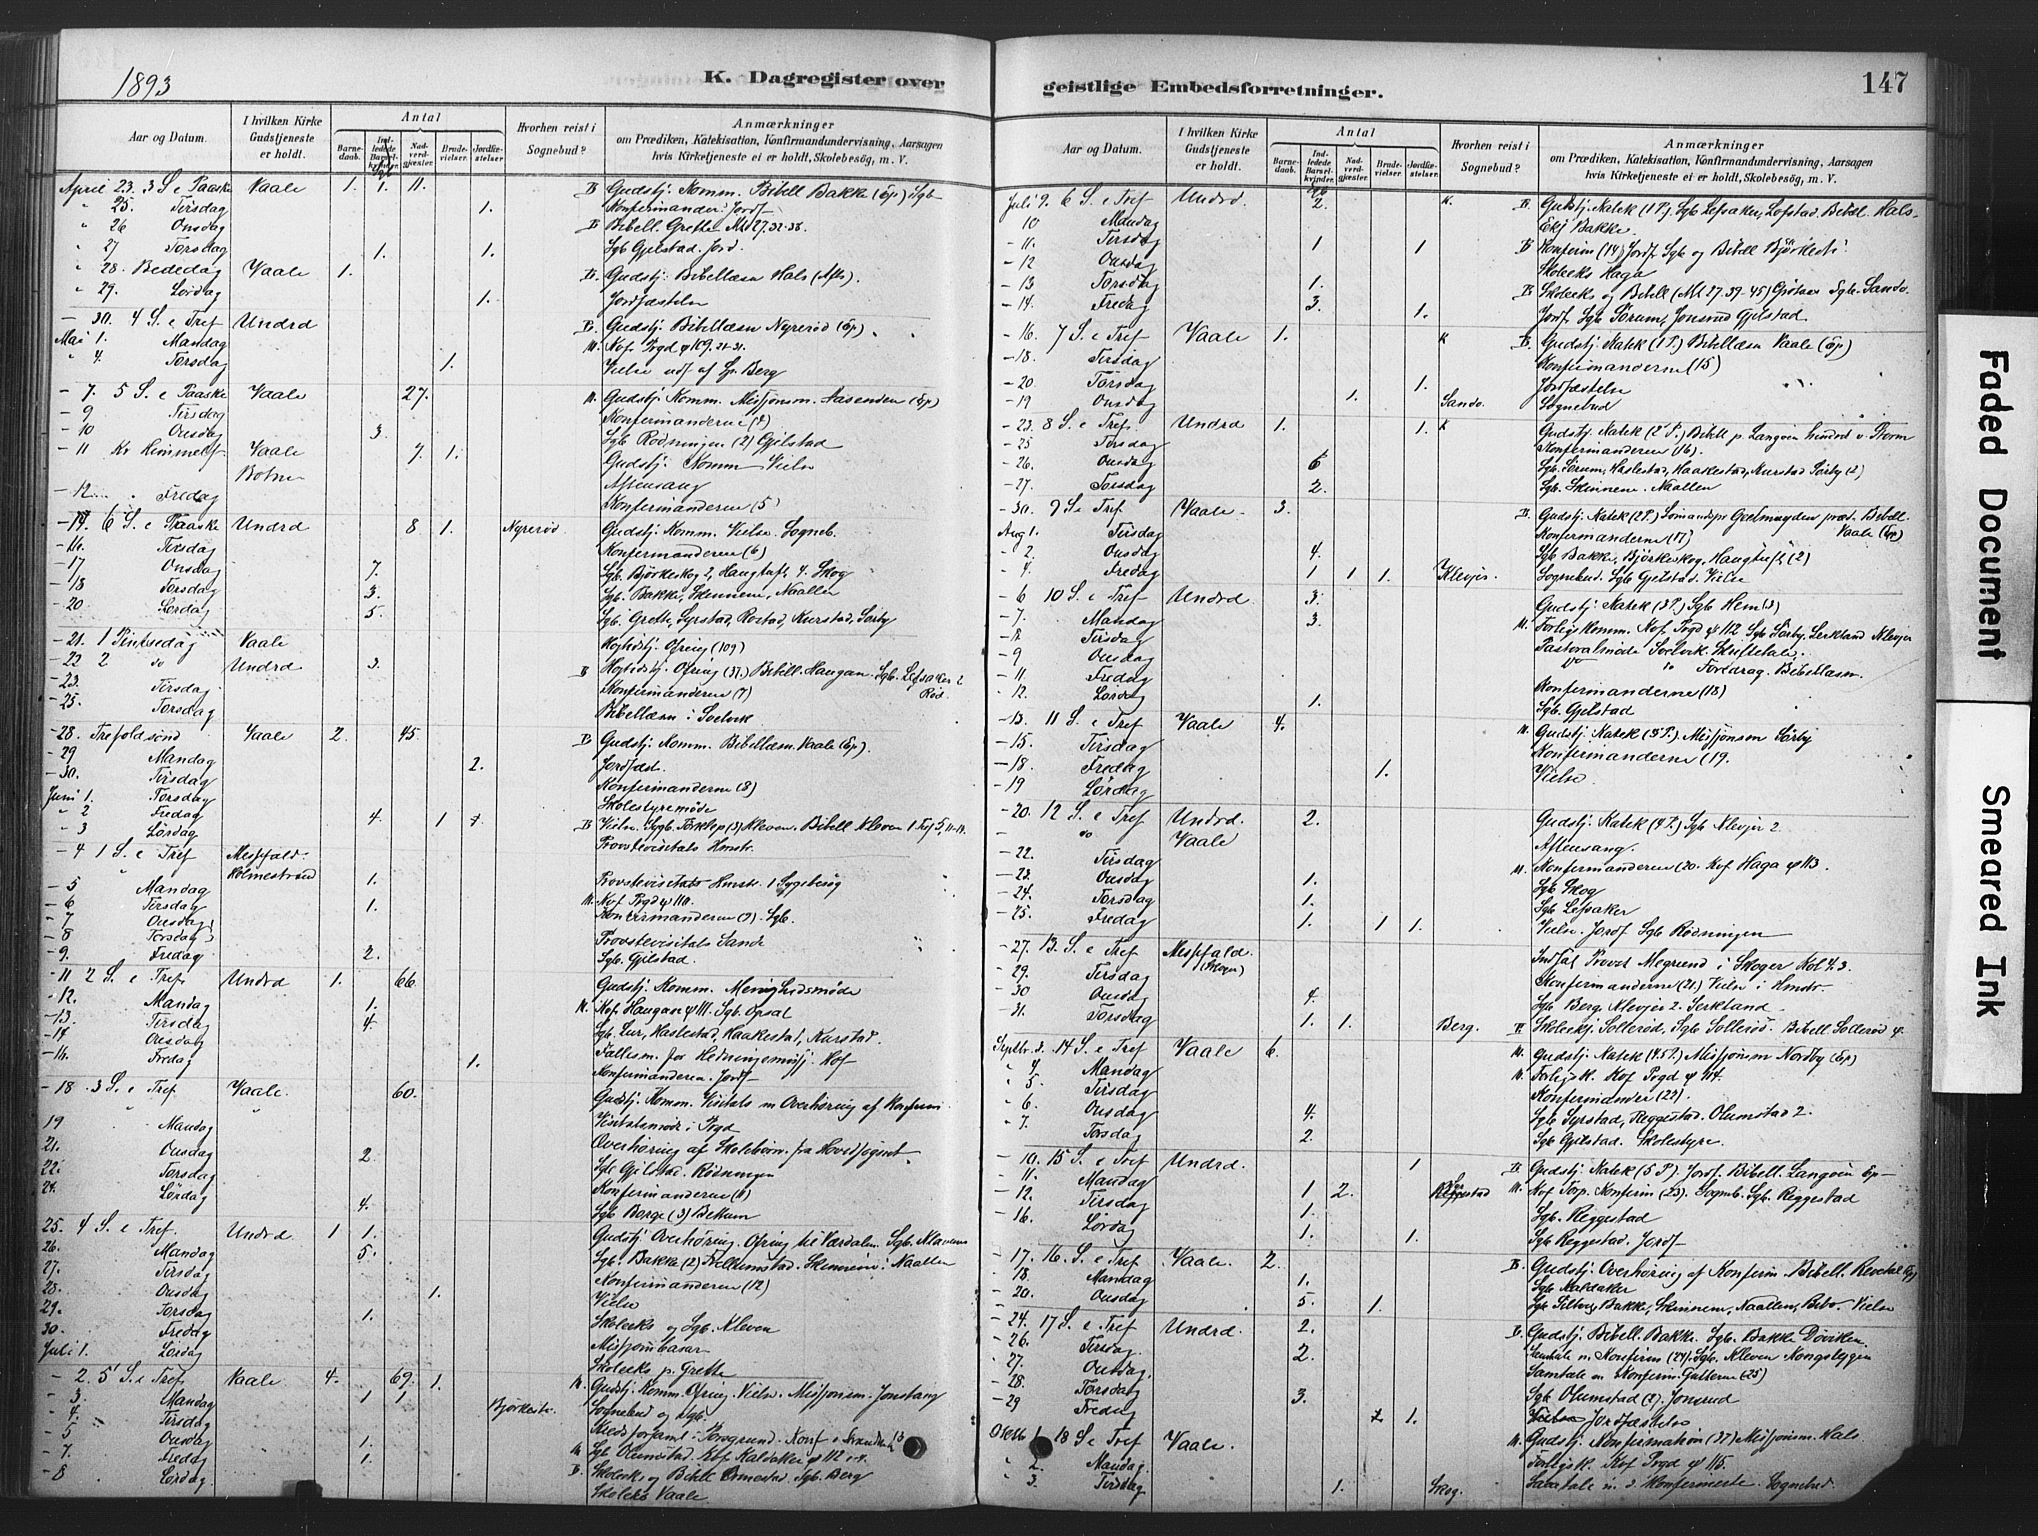 1893
K. Dagregister over
Aar og Datum.
I hvilken Kirke Gudstjeneste er holdt.
Antal
Barnedaab.
Indledede Barselkvinder.
Nadverdgjæster.
Brudevielser.
Jordfæstelser.
Hvorhen reist i Sognebud?
Anmærkninger
om Prædiken, Katekisation, Konfirmandundervisning, Aarsagen
hvis Kirketjeneste ei er holdt, Skolebesög, m. V.
April 23. 3 S. e Paaske Vaale 1. 1. 11. B Gudstj. Komm. Bibell Bakke (Ep) Sgb
" 25. Tirsdag 1. Konfermander. Jordf
" 26 Onsdag B Bibell. Grette Mt 27.32-38.
" 27 Torsdag 1. 1. Sgb Gjelstad. Jord.
" 28. Bededag Vaale 1. B. Gudstj. Bibellæsn Hals (Afts).
" 29. Lørdag 1. Jordfæstelse
- 30. 4 S. e Undrd B. Gudstj. Bibellæsn Nyrerød (Ep)
Mai 1. Mandag M. Kof. Pgd ψ109. 21-31.
" 4. Torsdag 1. Vielse udf af Berg
- 7. 5 S. e Paaske Vaale 27. M. Gudstj. Komm. Missjonsm. Aasenden (Ep)
- 9 Tirsdag Konfermanderne
- 10 Onsdag 3. Sgb. Rødningen (2) Gjelstad
- 11 Kr Himmelf Vaale 7. 1. Gudstj. Komm Vielse
Botne Aftensang
- 12 Fredag Konfermanderne (5)
- 14. 6 S. e Paaske Undrd 8 1. Nyrerød Gudstj. Komm. Vielse. Sogneb.
- 16. Tirsdag Konfermanderne (6)
- 17 Onsdag 7. Sgb. Björkeskog 2, Haugtuft, 4. Skog
- 18 Torsdag 3. Sgb. Bakke, Skinnene, Naallen
- 20 Lørdag 5. Sgb. Grette, Syrstad, Rostad, Kurstad, Sørby
- 21. 1 Pinksedag Vaale Høitidstj. Ofring (109)
- 22 2 do Undrd 3. B Høitidstj. Ofring (37.) Bibell. Haugan. Sgb. Lefsaker 2
- 23. Tirsdag. Konfermanderne (7) Röd.
- 25. Torsdag Bibellæsn i Svelvik
- 28. Trefoldsønd Vaale 2. 45. B Gudstj. Komm. Bibellæsn. Vaale (Ep).
- 29 Mandag 2. Jordfæst.
- 30. Tirsdag Konfermanderne (8)
Juni 1. Torsdag Skolestyremöde
" 2 Fredag 4. 1 B Vielse. Sygb. Torklep (3) Kleven. Bibell Kleven
- 3 Lørdag Provstevisitats Hmstr.
- 4 1 S. e Tref Messfald.
Holmestrand
- 5 Mandag 1. Provstevisitats Hmstr. 1 Sygebesøg
- 6 Tirsdag 1. M. Kof Pgd ψ 110.
- 7 Onsdag Konfirmanderne (9). Sgb.
- 8 Torsdag Provstevisitats Sande
- 9. Fredag 2. Sgb. Gjelstad.
- 11 2 S. e Tref. Undrd 1. 66. Gudstj. Komm. Menighedsmöde
- 12. Mandag 1. M. Kof Haugan ψ 111. Sgb. Opsal
- 13. Tirsdag 4. Sgb. Lur, Haslestad, Haakestad, Kurstad.
- 14 Onsdag Fællesm. for Hedningemissj. Kof
- 16. Fredag 1. Konfermanderne. Jordf
- 18 3 S. e Tref. Vaale. 60. Gudstj. Komm. Visitats m Overhøring af Konferm.
19 Mandag Visitatsmöde i Pgd
21. Onsdag 2. Overhøring af Skolebørn. fra Hovedsognet.
22. Torsdag Sgb Gjelstad. Rödningen
24. Lørdag 4. Konfermanderne
Sgb Borge (3) Bettum
25. 4 S. e Tref Undrd 1 1. Gudstj Overhøring. Ofring til Værdalen. Sgb. Klævens
26. Mandag 5. Sgb. Bakke (2) Skinnene. Naallen
27. Tirsdag Konfermanderne (12)
28. Onsdag 1. Vielse
29. Torsdag 1. Skoleeks og Sgb. Kleven
30. Fredag Missjonbasar
Juli 1. Lørdag Skoleeks p. Grette
- 2. 5 S. e Tref. Vaale 4. 69. 1. M. Gudstj. Komm. Ofring. Vielse. Missjonsm. Jonstang
- 3. Mandag 1 1. Björkestø. Sognebud og Sgb.
- 4. Tirsdag Kredsforsaml i Porsgrund.
- 5 Onsdag 1. M Sgb Olumstad. Kof Kaldaker ψ 112
- 7. Fredag 1. B. Skoleeks og Bibell Ormestad. Sgb. Berg
- 8 Lørdag. Skoleeks Vaale
geistlige Embedsforretninger.
147
Aar og Datum.
I hvilken Kirke Gudstjeneste er holdt.
Antal
Barnedaab.
Indledede Barselkvinder.
Nadverdgjæster.
Brudevielser.
Jordfæstelser.
Hvorhen reist i Sognebud?
Anmærkninger
om Prædiken, Katekisation, Konfirmandundervisning, Aarsagen
hvis Kirketjeneste ei er holdt, Skolebesög, m. V.
Juli 9. 6 S. e Tref Undrd. 2. K. B. Gudstj. Katek (1 P.) Sgb Lefsaker, Lofstad. Bibell. Hals-
10 Mandag Bakke.
- 11. Tirsdag 1 1 B Konferm (14) Jordf Sgb og Bibell Björkestø
- 12 Onsdag Skoleeks Haga
- 13 Torsdag 1. B Skoleeks og Bibell (Mt 27.39-45) Sgb. Sande.
- 14. Fredag 3. 1. Jordf. Sgb Sørum, Jonsrud Gjelstad
- 16. 7 S. e Tref Vaale 1. K B. Gudstj. Katek (1 P.) Bibellæsn Vaale (Ep)
- 18. Tirsdag Konfermanderne (15)
- 20 Torsdag 1. Jordfæstelse
- 19 Onsdag 1. Sande. Sognebud
- 23. 8 S. e Tref. Undrd 1. 1. K Gudstj. Katek (2 P.) Bibell p. Langøen hindret v. Storm
- 25 Tirsdag Konfermanderne (16).
- 26. Onsdag 6 Sgb. Sørum, Haslestad, Haakestad, Kurstad Sørby (2)
- 27. Torsdag 2. Sgb. Skinnene. Naallen
- 30. 9 S. e Tref Vaale. 3. B. Gudstj. Katek (2 P.) præd. Bibell.
Aug 1. Tirsdag Konfermanderne (17) Vaale (Ep)
- 2. Onsdag 4. Sgb Bakke, Björkeskog, Haugtuft, (2)
- 4. Fredag 1 1 1. Klevjer. Sognebud. Sgb Gjelstad. Vielse
- 6 10 S. e Tref Undrd. 3. Gudstj. Katek (3 P.) Sgb Hem (3)
- 7. Mandag 3. M. Forligskomm. Kof. Pgd ψ 112 Sgb Sørby, Serkland Klevjer
- 8 Tirsdag Pastoralmøde Svelvik Skiftetale.
- 9 Onsdag do Foredrag. Bibellæsn.
- 11 Fredag Konfermanderne (18)
- 12. Lørdag 1. Sgb. Gjelstad
- 13. 11 S. e Tref Vaale 4. M. Gudstj. Katek (3 P.) Missjonsm Sørby
- 15. Tirsdag Konfermanderne (19.
- 18. Fredag 1. Vielse
- 19 Lørdag
- 20. 12 S. e Tref Undrd. 2. Gudstj. Katek (4 P.) Sgb Klevjer 2
- do Vaale Aftensang.
- 22. Tirsdag M. Konfermanderne (20. Kof Haga ψ 113.
- 23. Onsdag 1. Sgb Skog
- 24. Torsdag 1. Sgb Lefsaker
- 25. Fredag 1. 1 1. Vielse. Jordf Sgb Rødningen
- 27. 13. S. e Tref Messfald. Indsat Provst Megrund i Skoger Kol 4.3.
- 29. Tirsdag (Skoger) Konfermanderne (21.) Vielse i Hmstr.
- 30 Onsdag 4. Sgb. Berg, Klevjer 2. Serkland.
- 31. Torsdag 1. 1. Berg. B Skoleeks Sollerød, Sgb Sollerød. Bibell. Sollerød
Septbr. 3. 14 S. e Tref Vaale 6. M. Gudstj. Katek (4.5 P.) Missjonsm Nordby (Ep)
" 4. Mandag M. Forligsk. Kof Pgd ψ 114.
" 5. Tirsdag Konfermander (22).
- 6. Onsdag 4. Sgb Syrstad, Reggestad. Olumstad 2.
" 7. Torsdag 2. Sgb Gjelstad. Skolestyre.
- 10. 15 S. e Tref Undrd. 1 B. Gudstj. Katek (5 P.) Jordf. Bibell. Langøen Ep
- 11. Mandag 1 2. Reggestad M. Kof Torp. Konferm (23). Sogneb. Sgb. Reggestad
- 12. Tirsdag 1. Sgb. Reggestad
- 16. Lørdag 1. 1. Sgb Reggestad. Jordf
- 17. 16. S. e Tref Vaale. 2. B. Gudstj. Overhøring af Konferm. Bibell. Revetal Ep)
- 18. Mandag 1. Sgb Kaldaker
- 20. Onsdag 5. 1. Bakke, Skinnene, Naallen, Vielse
- 24. 17 S. e Tref Undrd. 2. B. Gudstj. Bibell. Bakke. Sgb. Bakke Døviken
- 26. Tirsdag. 2. Samtale m. Konferm (24). Sgb. Kleven Kongsbyggen
- 27. Onsdag. Samtale m Konferm. Gutterne (25)
- 28. Torsdag 3. Sgb Olumstad (2). Jonsrud
- 29 Fredag 1. Jordfæstelse
Oktb 1 18 S. e Tref Vaale. M. Gudstj. Konfirmation (37) Missjonsm. Hals
" 2. Mandag. Forligsk. Kof Pgd ψ 115.
" 3. Tirsdag 1. Skog. Samtale m. Konfermerte. Sognebud.
Faded Document
Smeared Ink